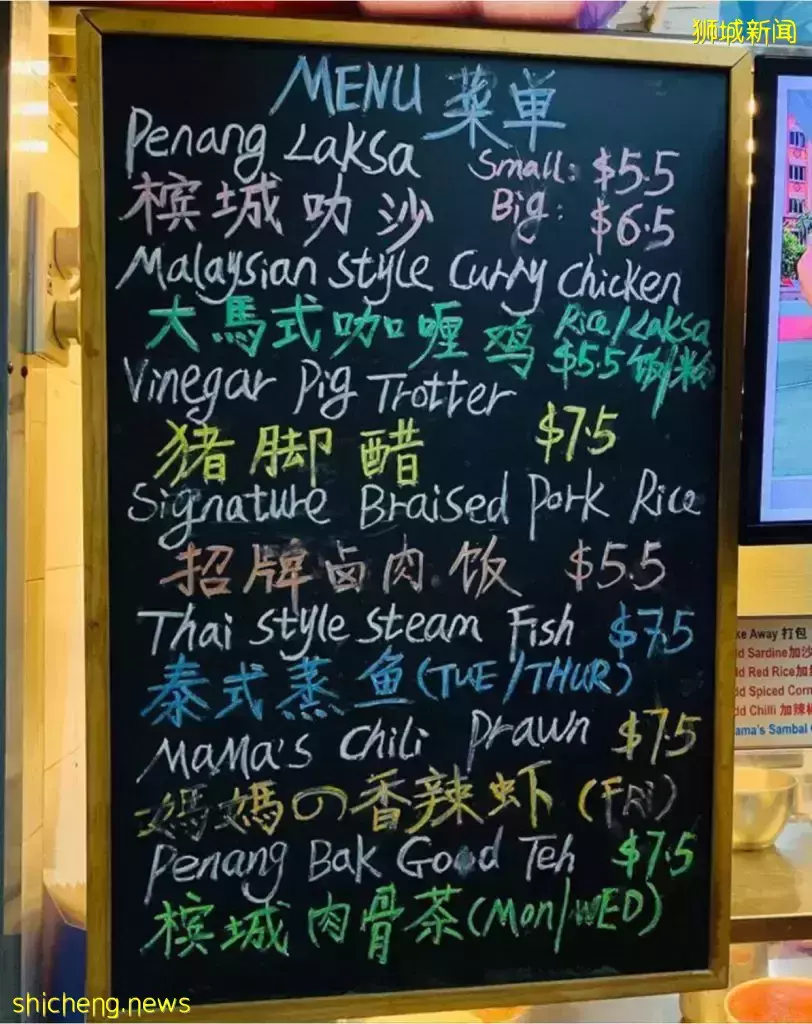 狮城新闻
MENU 菜单
Penang Laksa Small: $5.5
槟城叻沙 Big: $6.5
Malaysian Style Curry Chicken
大馬式咖喱鸡 Rice/Laksa
$5.5 饭/粉
Vinegar Pig Trotter
猪脚醋 $7.5
Signature Braised Pork Rice
招牌卤肉饭 $5.5
Thai Style Steam Fish $7.5
泰式蒸鱼(TUE/THUR)
MaMa's Chili Prawn $7.5
媽媽の香辣虾 (FRI)
Penang Bak Good Teh $7.5
槟城肉骨茶(Mon/WED)
ke Away 打包
dd Sardine加沙
dd Red Rice加
dd Spiced Corn
dd Chilli 加辣椒
ama's Sambal
shicheng.news